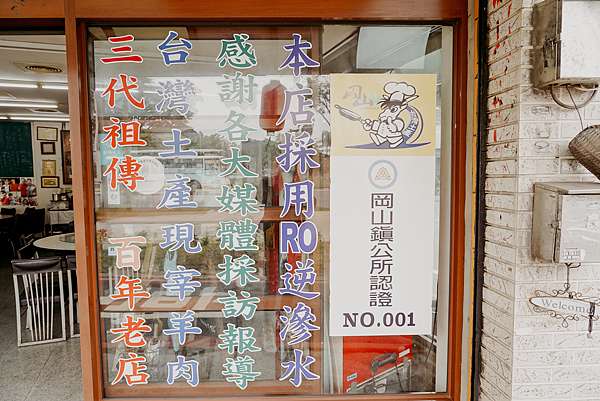 本店採用RO逆滲水
感謝各大媒體採訪報導
台灣土產現宰羊肉
三代祖傳 百年老店
岡山
岡山鎮公所認證
NO.001
Welcome